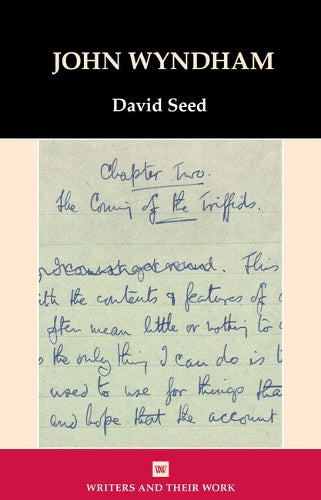 JOHN WYNDHAM
David Seed
Chapter Two.
The Coming of the Triffids.
This
with the contents & features of
often mean little or nothing to
the only thing I can do is
used to use for things tha
and hope that the account
W
WRITERS AND THEIR WORK